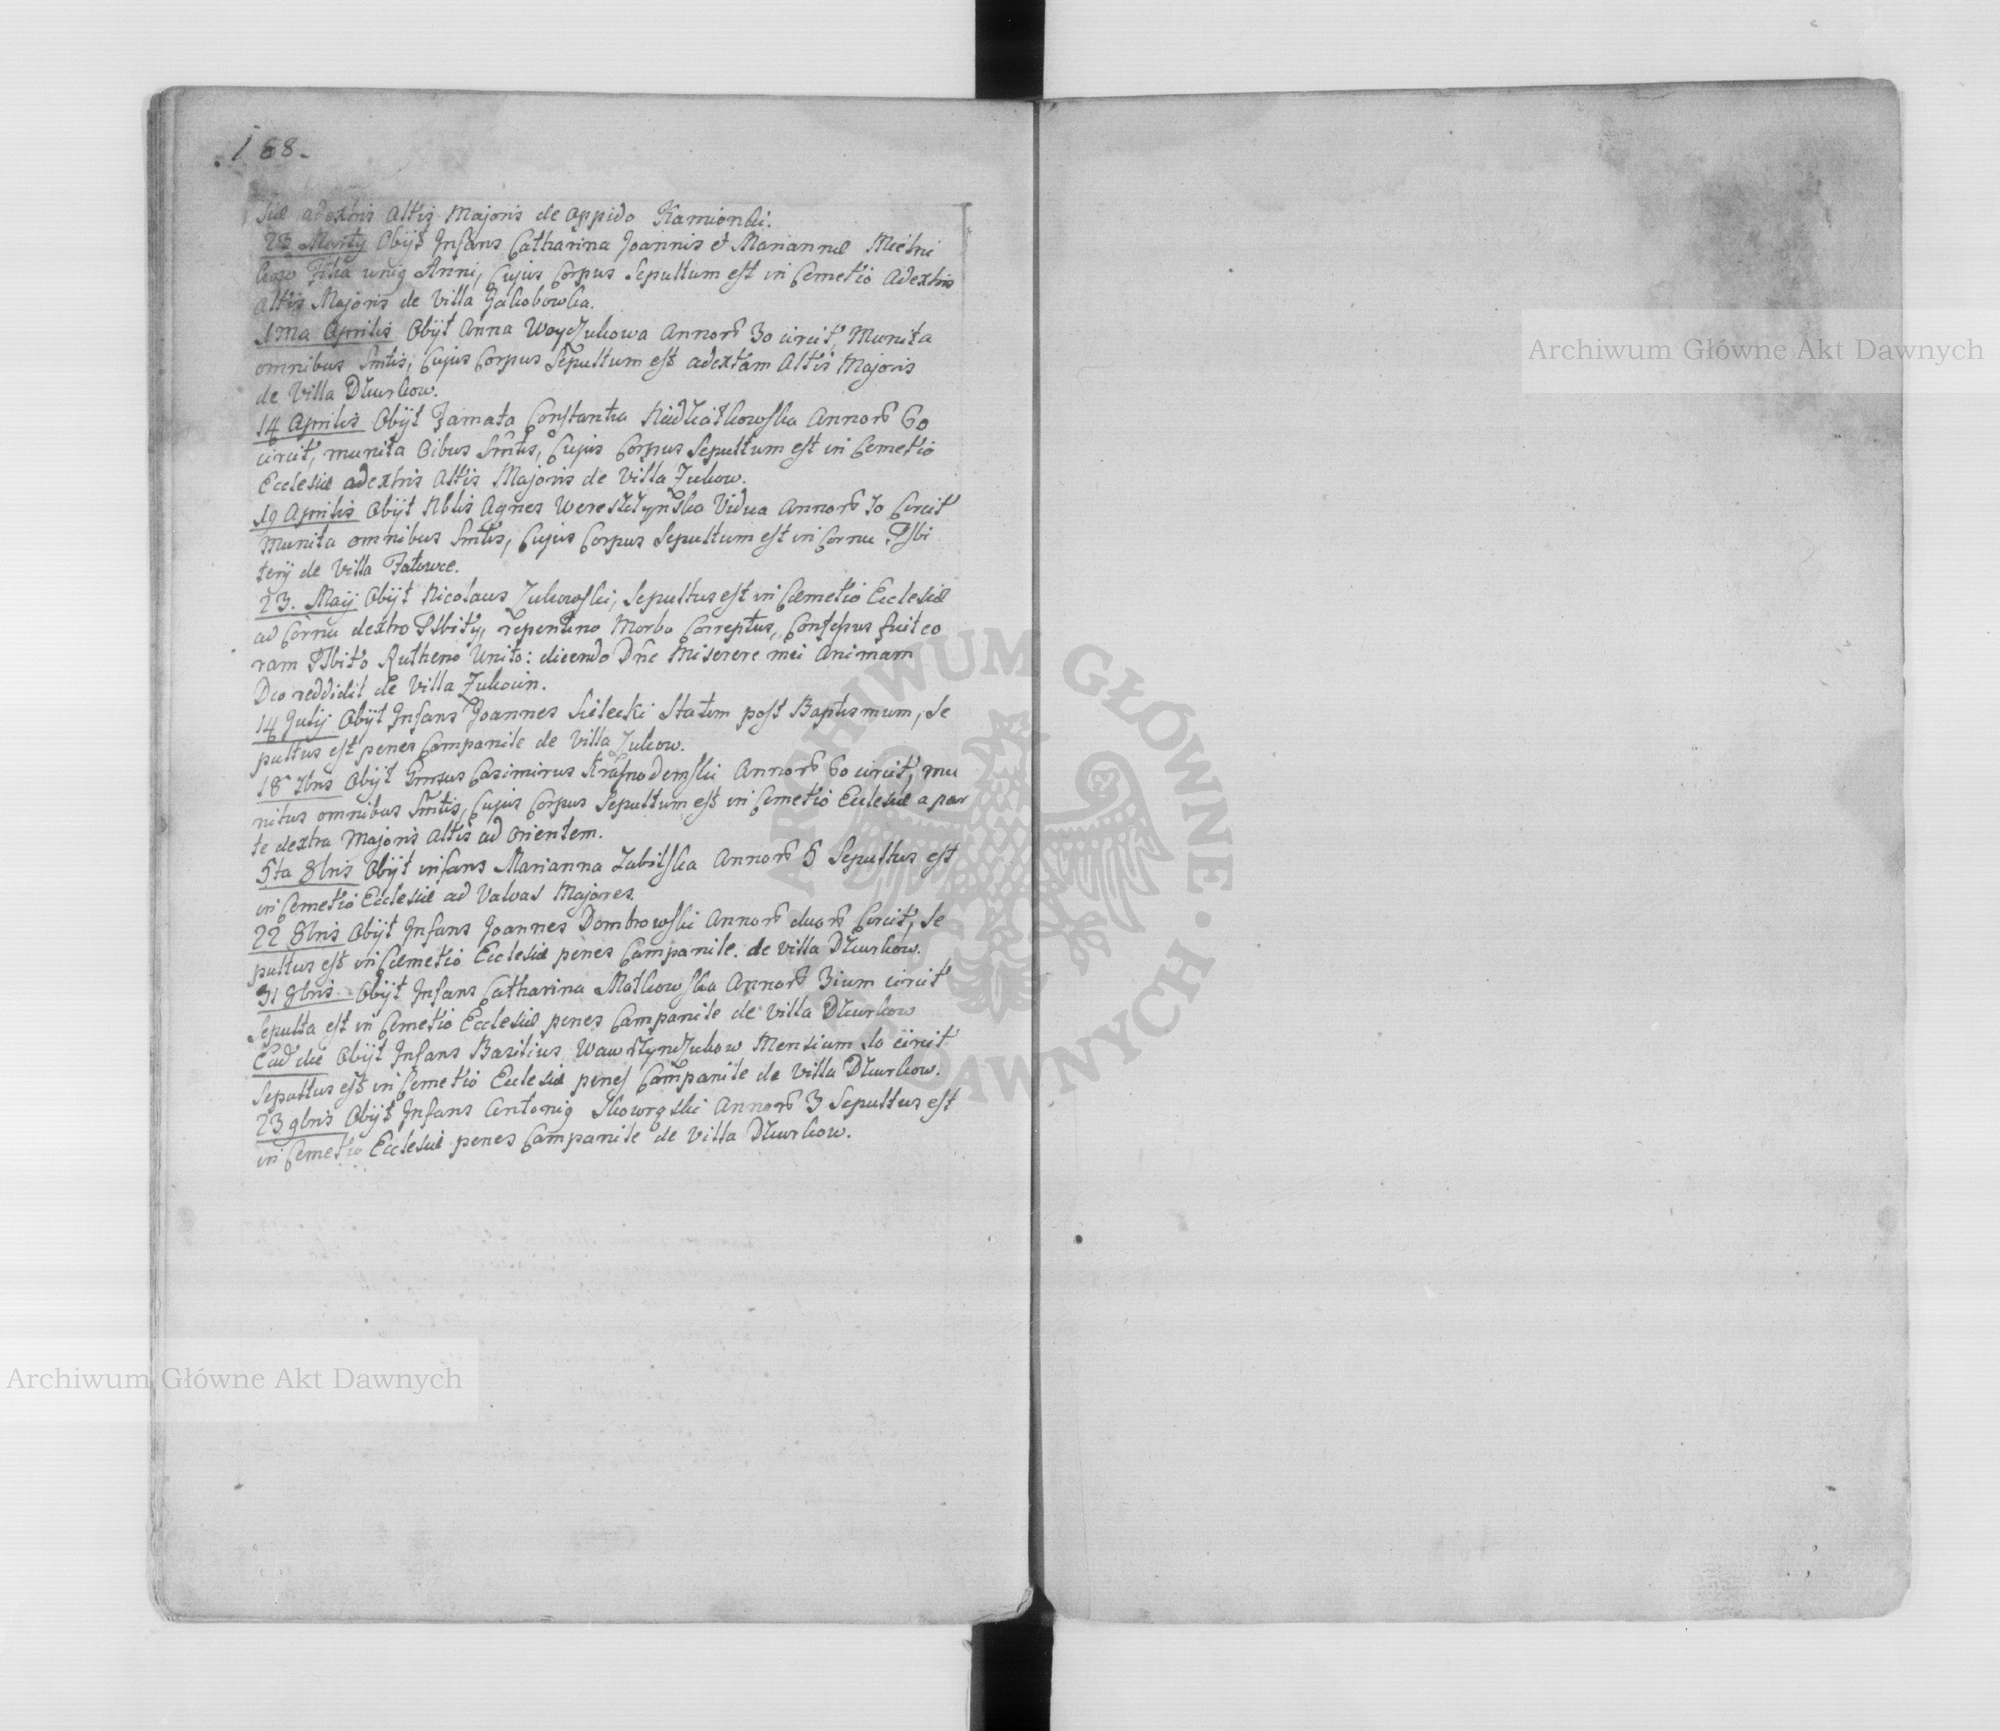 .168.
siæ adextris Altis Majoris de Oppido Kamionki.
23 Martij Obijt Infans Catharina Joannis et Mariannæ Mietni
kow Filia unig Anni, Cujus Corpus Sepultum est in Cemetio Adextris
Altis Majoris de Villa Jakobowka.
1ma Aprilis Obijt Anna Woyczukowa Annorũ 30 circit, Munita
omnibus Smtis, Cujus Corpus Sepultum est adextam Altis Majoris
de Villa Dzurkow.
14 Aprilis Obijt Famata Constantia Annorũ 60
circit, munita Oibus Smtis, Cujus Corpus Sepultum est in Cemetio
Ecclesiæ adextris Altis Majoris de Villa Zukow.
19 Aprilis Obijt Nblis Agnes Wereszczynska Vidua Annorũ 70 Circit
Munita omnibus Smtis, Cujus Corpus Sepultum est in Cornu Psbi
terij de Villa
23. Maij Obijt Nicolaus Zukowski, Sepultus est in Cæmetio Ecclesiæ
ad Cornu dextro Psbitij, repentino Morbo Correptus, Confesus fuit co
ram Psbito Rutheno Unito: dicendo Dñe Miserere mei Animam
Deo reddidit de Villa
14 Julij Obijt Infans Joannes Sielecki Statim post Baptismum, Se
pultus est penes Campanile de Villa Zukow.
18 7bris Obijt Gnrsus Casimirus Krasnodemski Annorũ 60 circit, mu
nitus omnibus Smtis, Cujus Corpus Sepultum est in Cemetio Ecclesiæ a par
te dextra Majoris Altis ad Orientem.
5ta 8bris Obijt infans Marianna Zabilska Annorũ 5 Sepultus est
in Cemetio Ecclesiæ ad Valvas Majores.
22 8bris Obijt Infans Joannes Dombrowski Annorũ duorũ Circit, Se
pultus est in Cæmetio Ecclesiæ penes Campanile. de Villa Dzurkow.
31 8bris Obijt Infans Catharina Malkowska Annorũ 3ium circit
Sepulta est in Cemetio Ecclesiæ penes Campanile de Villa Dzurkow
Ead die Obijt Infans Basilius Mensium 10 circit
Sepultus est in Cemetio Ecclesiæ penes Campanile de Villa Dzurkow.
23 9bris Obijt Infans Antonig Annorũ 3 Sepultus est
in Cemetio Ecclesiæ penes Campanile de Villa Dzurkow.
Archiwum Główne Akt Dawnych
Archiwum Główne Akt Dawnych
ARCHIWUM GŁÓWNE AKT DAWNYCH